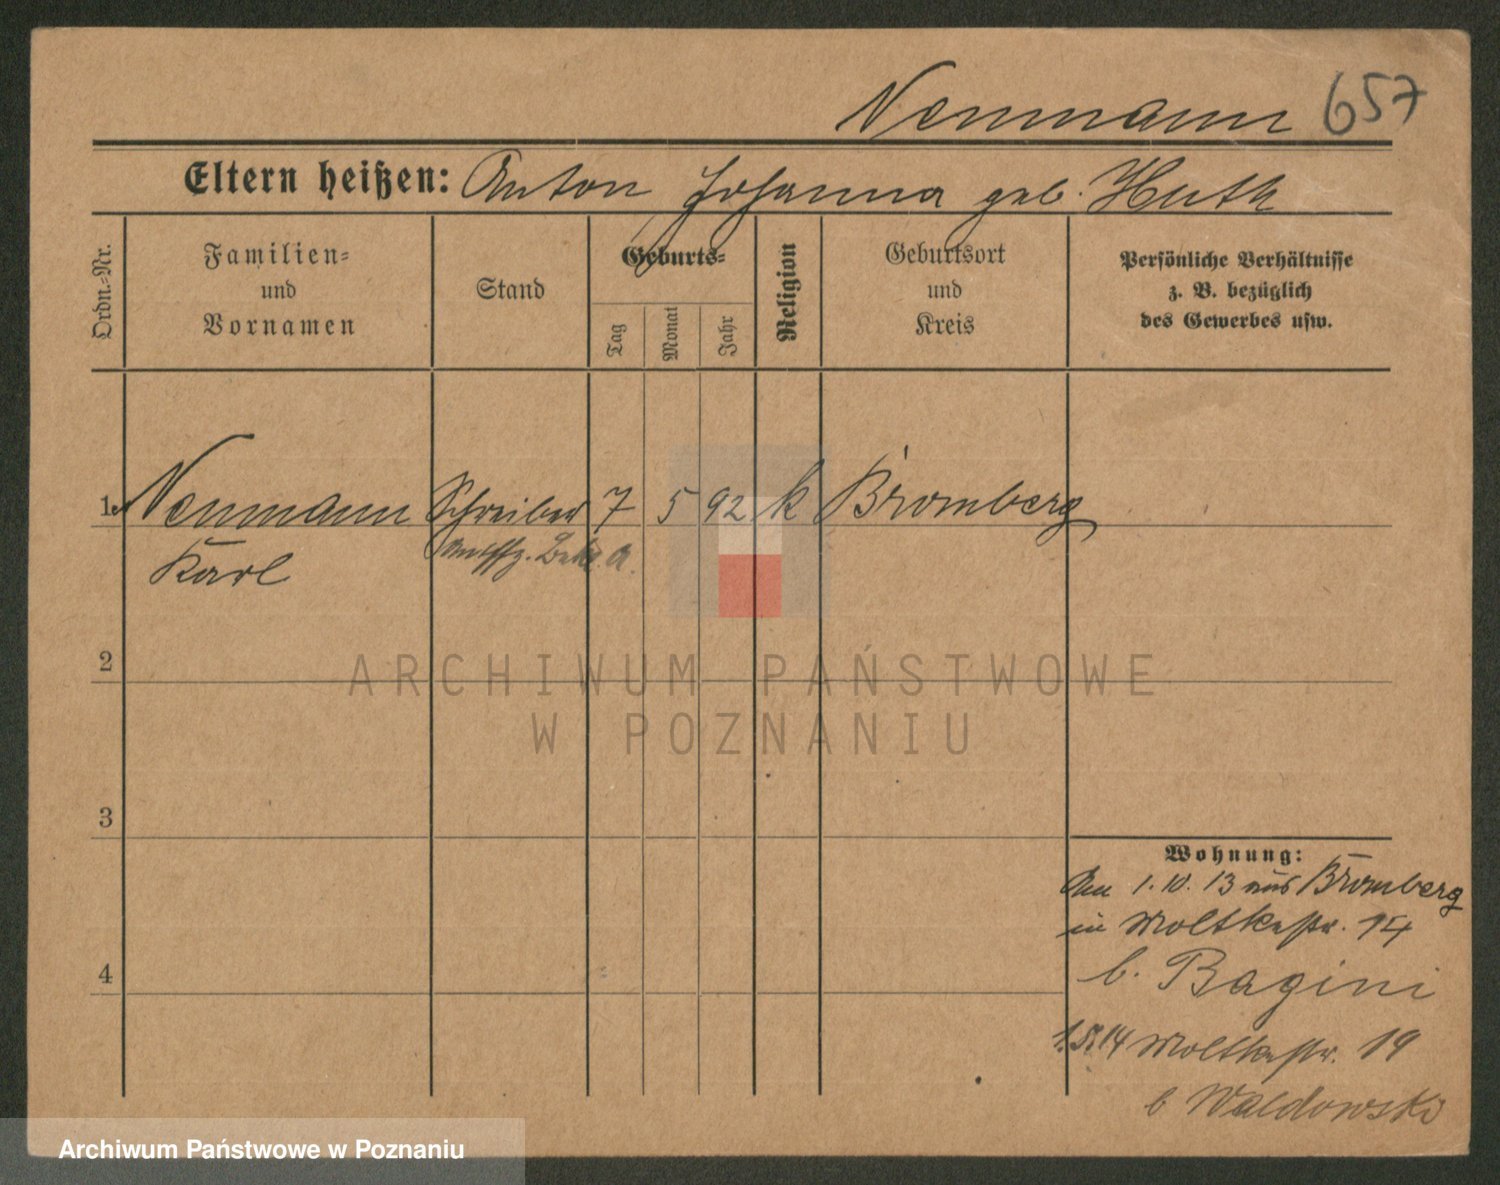 Neumann 657
Eltern heißen: Anton Johanna geb. Huth
Ordn.-Nr.
Familien-
und
Vornamen
Stand
Geburts-
Tag
Monat
Jahr
Religion
Geburtsort
und
Kreis
Persönliche Verhältnisse
z. B. bezüglich
des Gewerbes usw.
1. Neumann Schreiber 7 5 92 k Bromberg
Karl
2
ARCHIWUM PAŃSTWOWE
W POZNANIU
3
Wohnung:
Am 1.10.13 aus Bromberg
in Moltkestr. 14
4
b. Bagini
1.5.14 Moltkestr. 19
b Waldowski
Archiwum Państwowe w Poznaniu